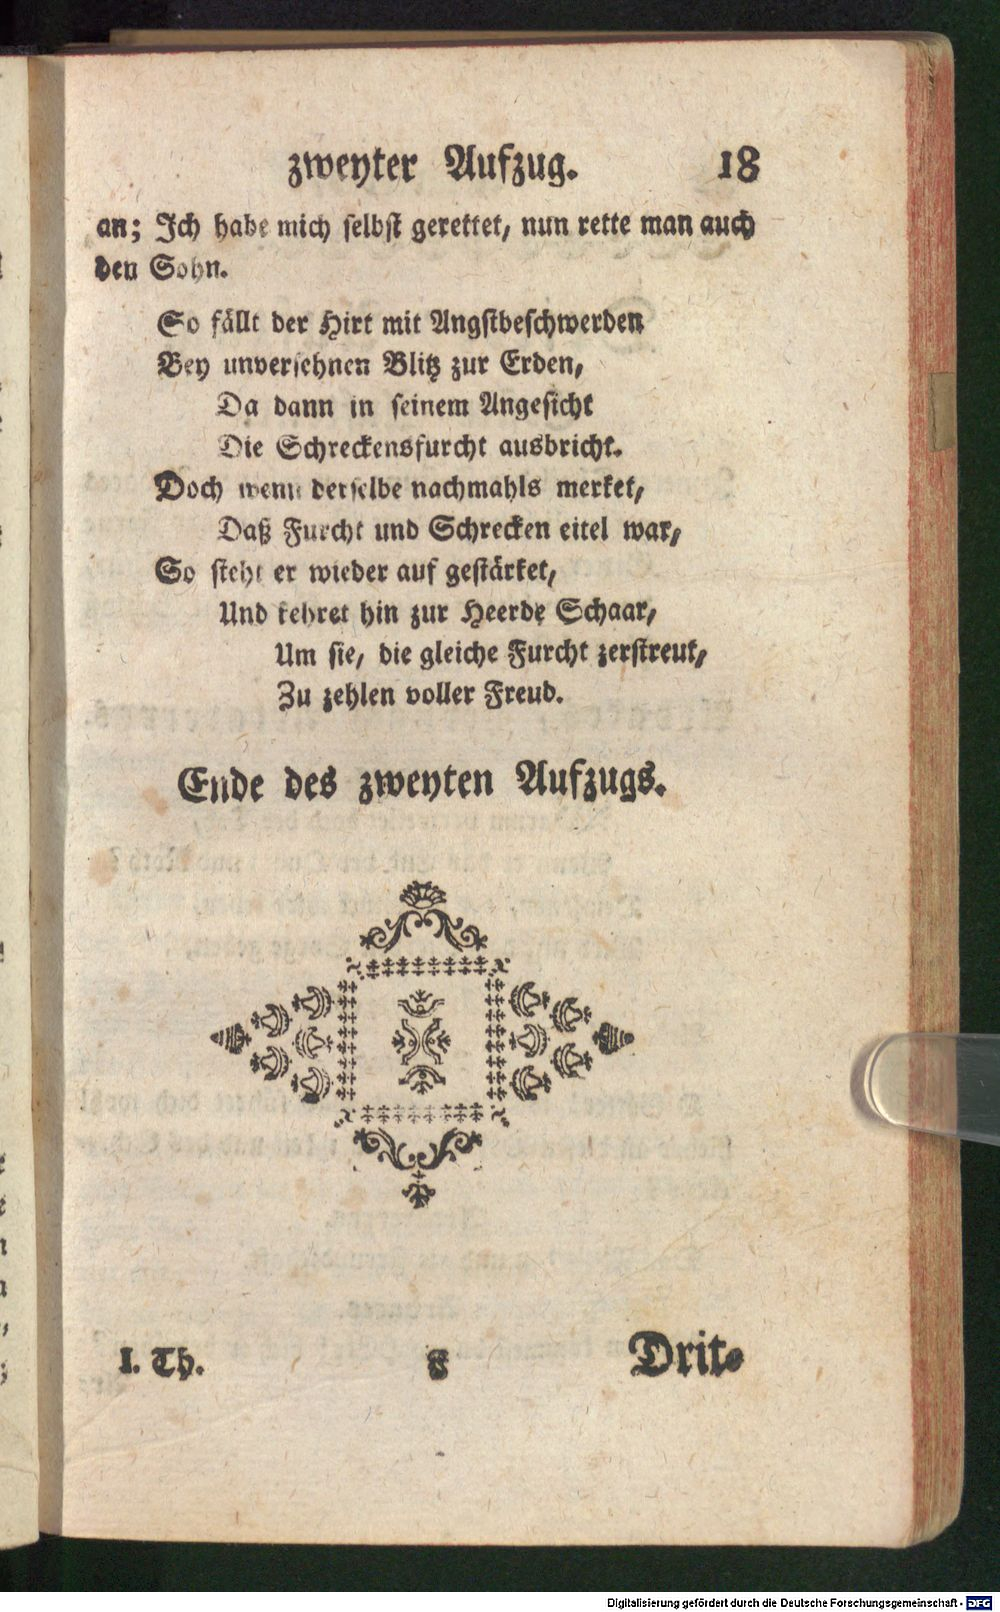 zweyter Aufzug. 18
an; Ich habe mich selbst gerettet, nun rette man auch
den Sohn.
So fällt der Hirt mit Angstbeschwerden
Bey unversehnen Blitz zur Erden,
Da dann in seinem Angesicht
Die Schreckensfurcht ausbricht.
Doch wenn derselbe nachmahls merket,
Daß Furcht und Schrecken eitel war,
So steht er wieder auf gestärket,
Und kehret hin zur Heerde Schaar,
Um sie, die gleiche Furcht zerstreut,
Zu zehlen voller Freud.
Ende des zweyten Aufzugs.
I. Th. Drit-
Digitalisierung gefördert durch die Deutsche Forschungsgemeinschaft - DFG